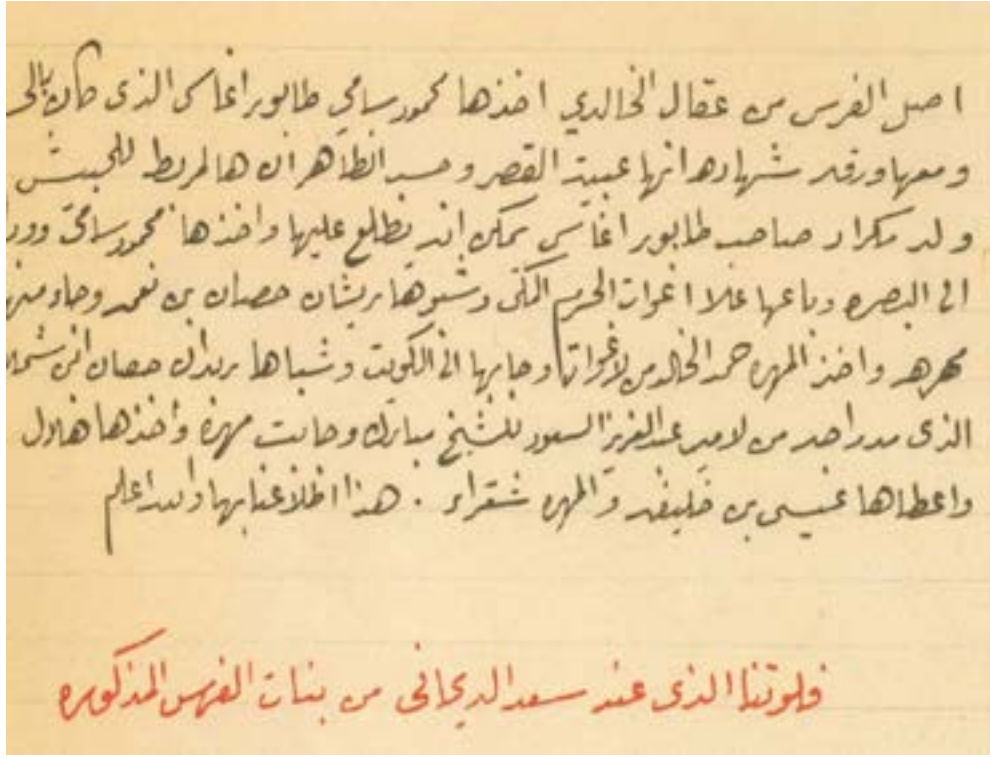 اصل الفرس من عقال الخالدي اخذها محمود سامي طابور اغاسي الذى كان بالحـ
ومعها ورقه شهاده انها عبية القصر وحسب الظاهر ان هالمربط للحبيش
ولد مكراد صاحب طابور اغاسي يمكن انه يطلع عليها واخذها محمود سامي وور
الى البصره وباعها علا اغوات الحرم المكى وشبوها بريشان حصان بن نعمه وجاء منها
مهره واخذ المهره حمد الخالد من لاغوات وجابها الى الكويت وشباها بريدان حصان
الذى مدر احد من لامير عبدالعزيز السعود للشيخ مبارك وجابت مهرة وأخذها هلال
واعطاها عيسى بن خليفه والمهره شقراء . هذا اطلاعنا بها والله اعلم
فلوتنا الذى عند سعد الديحانى من بنات الفرس المذكوره